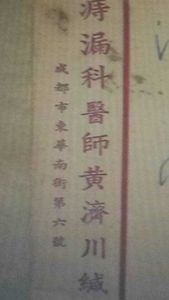 痔漏科醫師黄濟川緘
成都市東華南街第六號